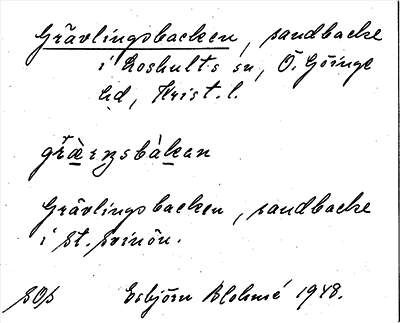 Grävlingsbacken, sandbacke
i Loshults sn, Ö. Göinge
hd, Krist. l.
Grävlingsbacken, sandbacke
i St. Svinön.
SOS Esbjörn Blohmé 1948.